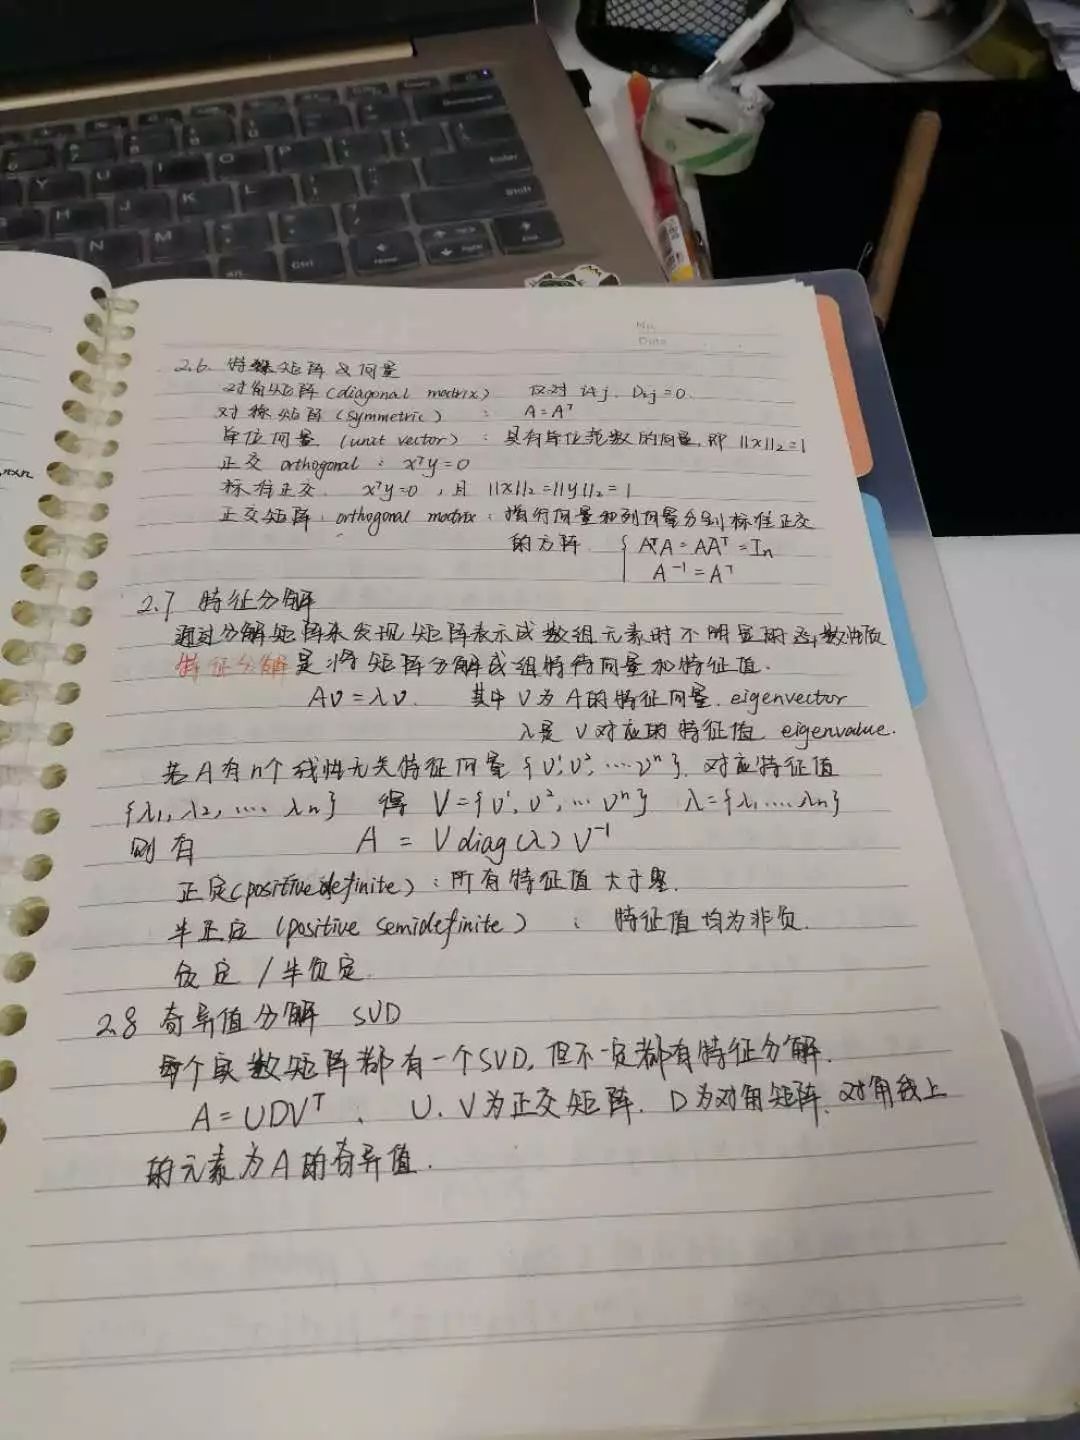 No.
Date
2.6. 特殊矩阵及向量
对角矩阵(diagonal matrix) 仅对 i≠j, Di,j=0.
对称矩阵(symmetric) : A=Aᵀ
单位向量 (unit vector) : 具有单位范数的向量,即 ||x||₂=1
正交 orthogonal : xᵀy=0
标准正交. xᵀy=0 ,且 ||x||₂=||y||₂=1
正交矩阵: orthogonal matrix : 指行向量和列向量分别标准正交
的方阵. { AᵀA=AAᵀ=In
A⁻¹=Aᵀ
nxn
2.7 特征分解
通过分解矩阵来发现矩阵表示成数组元素时不明显的函数性质
特征分解是将矩阵分解成组特征向量和特征值.
Av=λv. 其中 V为A的特征向量. eigenvector
λ是 V对应的特征值 eigenvalue.
若A有n个线性无关特征向量{v¹,v²,…vⁿ}. 对应特征值
{λ₁,λ₂,… λn} 得 V={v¹,v²,…vⁿ} λ={λ₁…λn}
则有 A = Vdiag(λ)V⁻¹
正定(positive definite) : 所有特征值大于零.
半正定 (positive semidefinite) : 特征值均为非负.
负定 / 半负定.
2.8 奇异值分解 SVD
每个实数矩阵都有一个SVD,但不一定都有特征分解.
A=UDVᵀ . U.V为正交矩阵. D为对角矩阵,对角线上
的元素为A的奇异值.